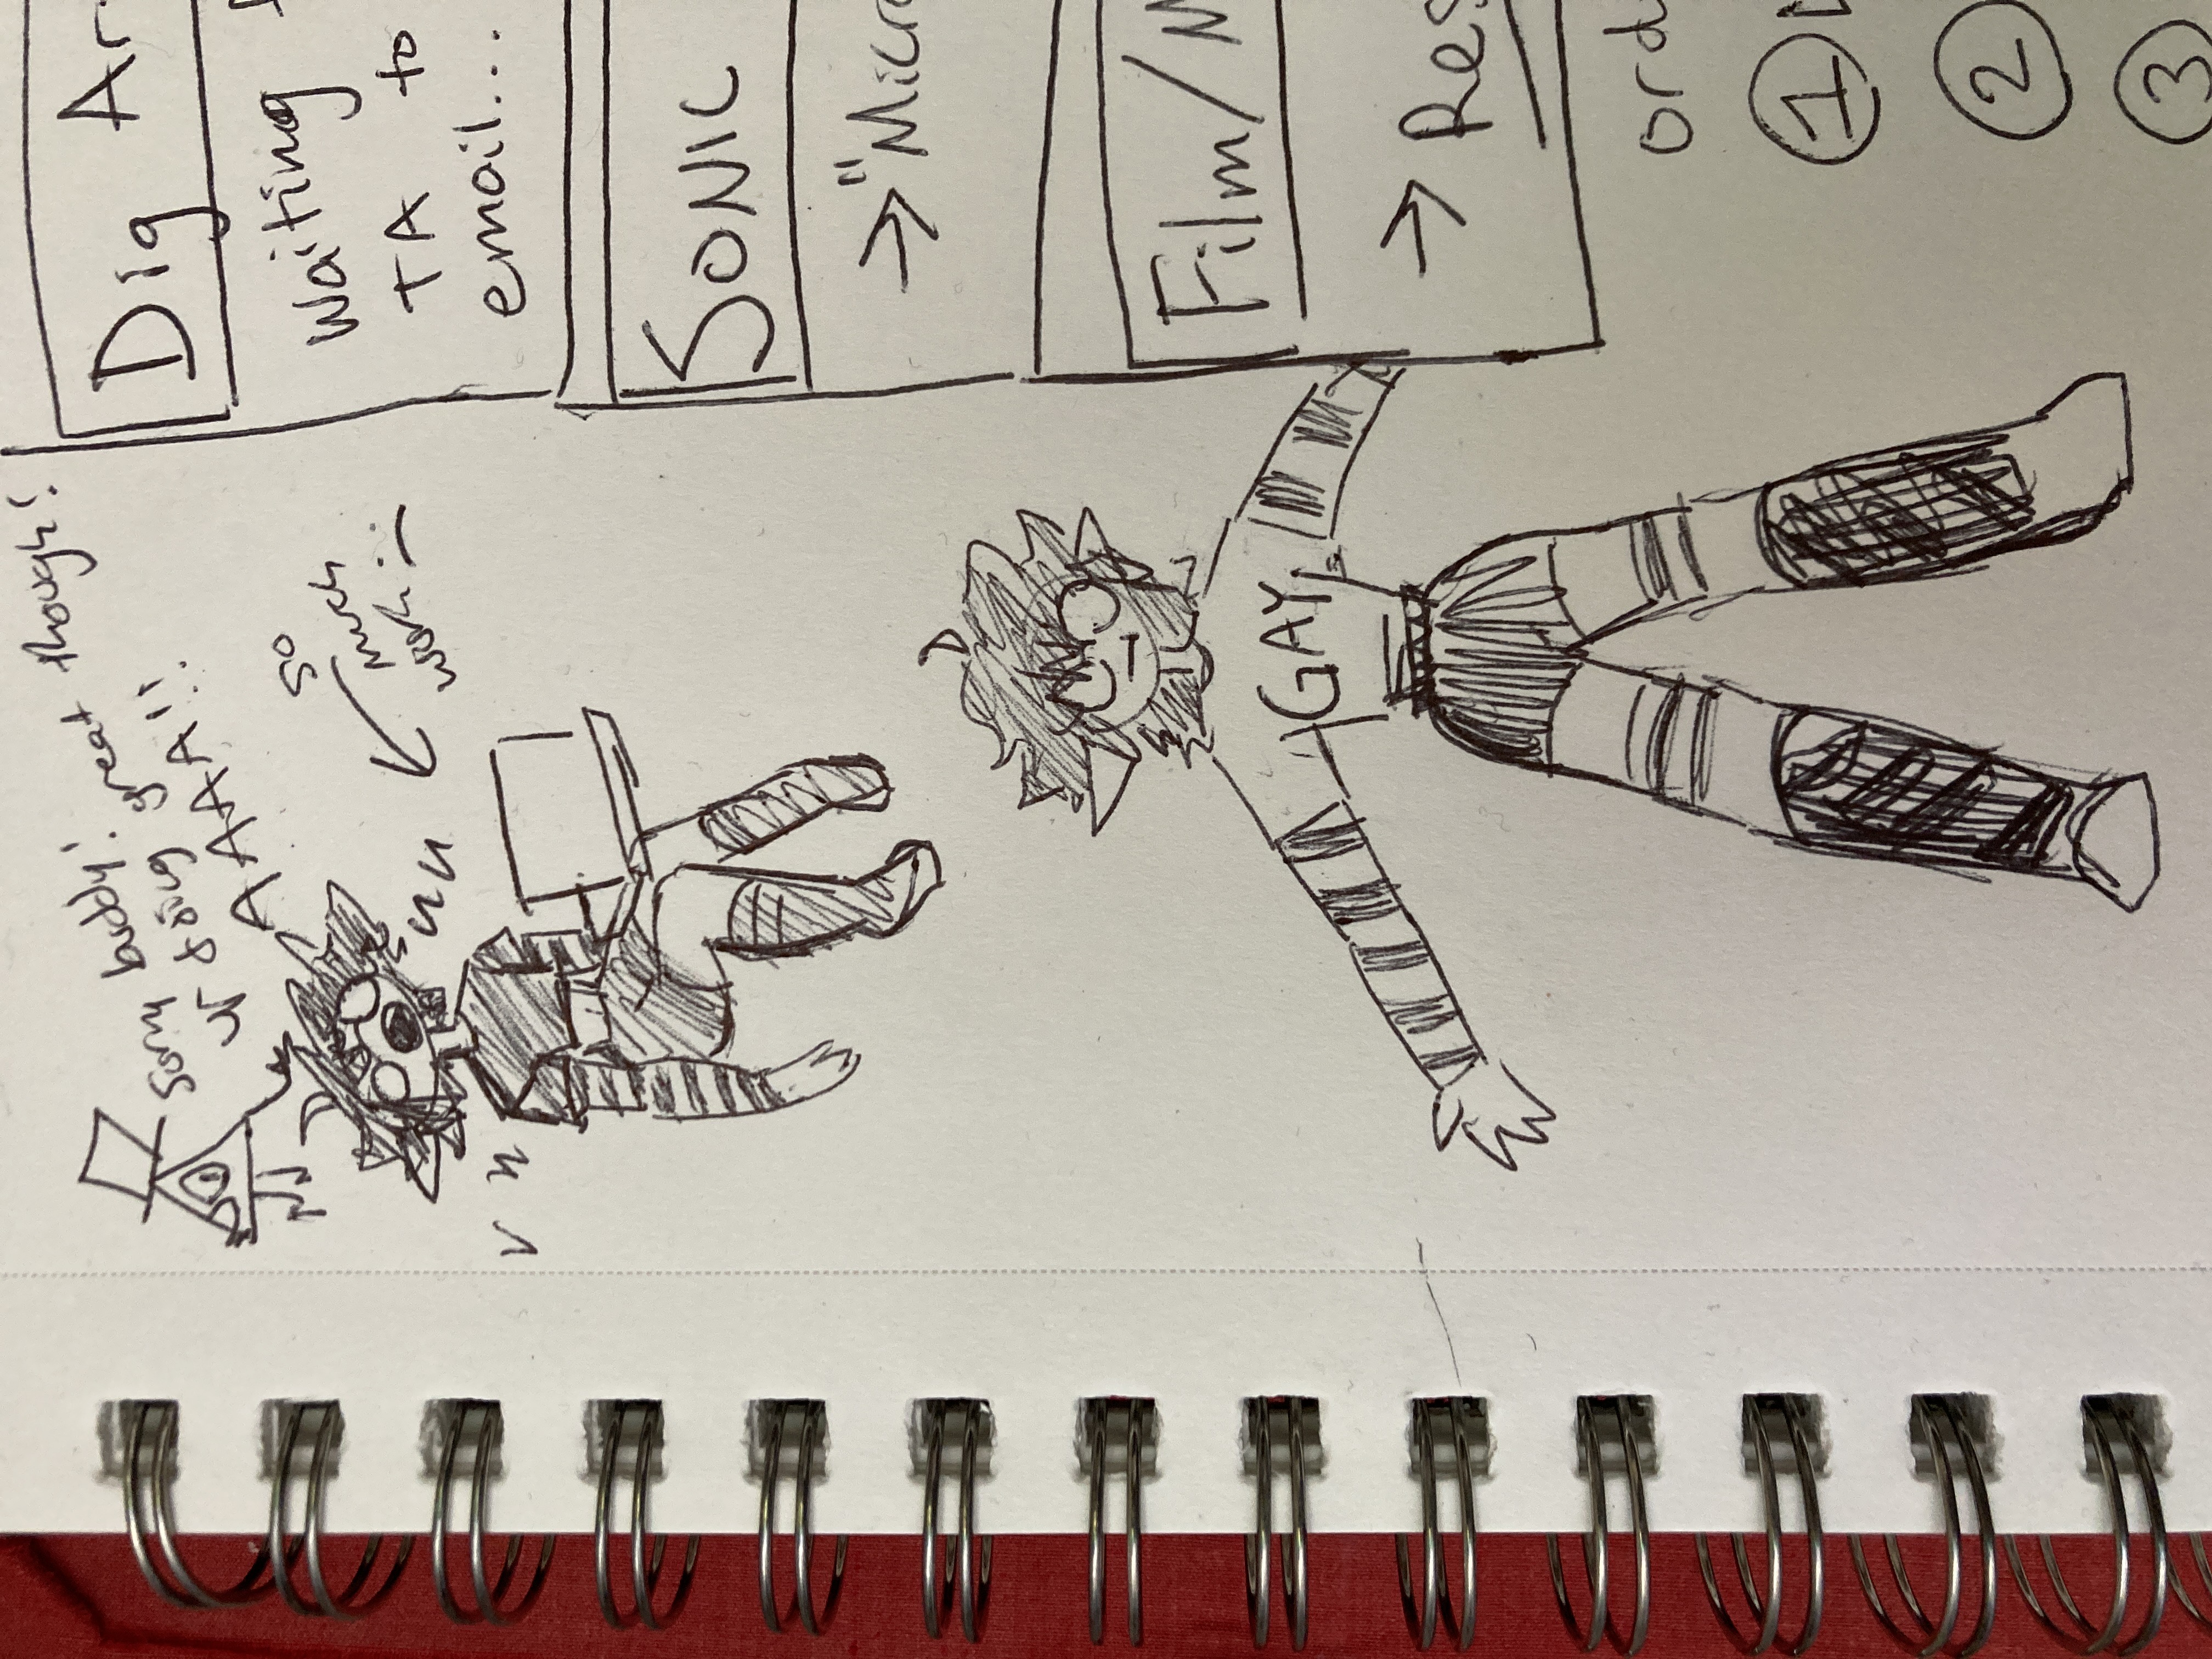 Sorry buddy!
ur doing great though!
AAAA!!
so
much
work
GAY
Dig Ar
Waiting
TA to
email...
SONIC
→ "Micro
Film/M
→ Res
ord
1
2
3